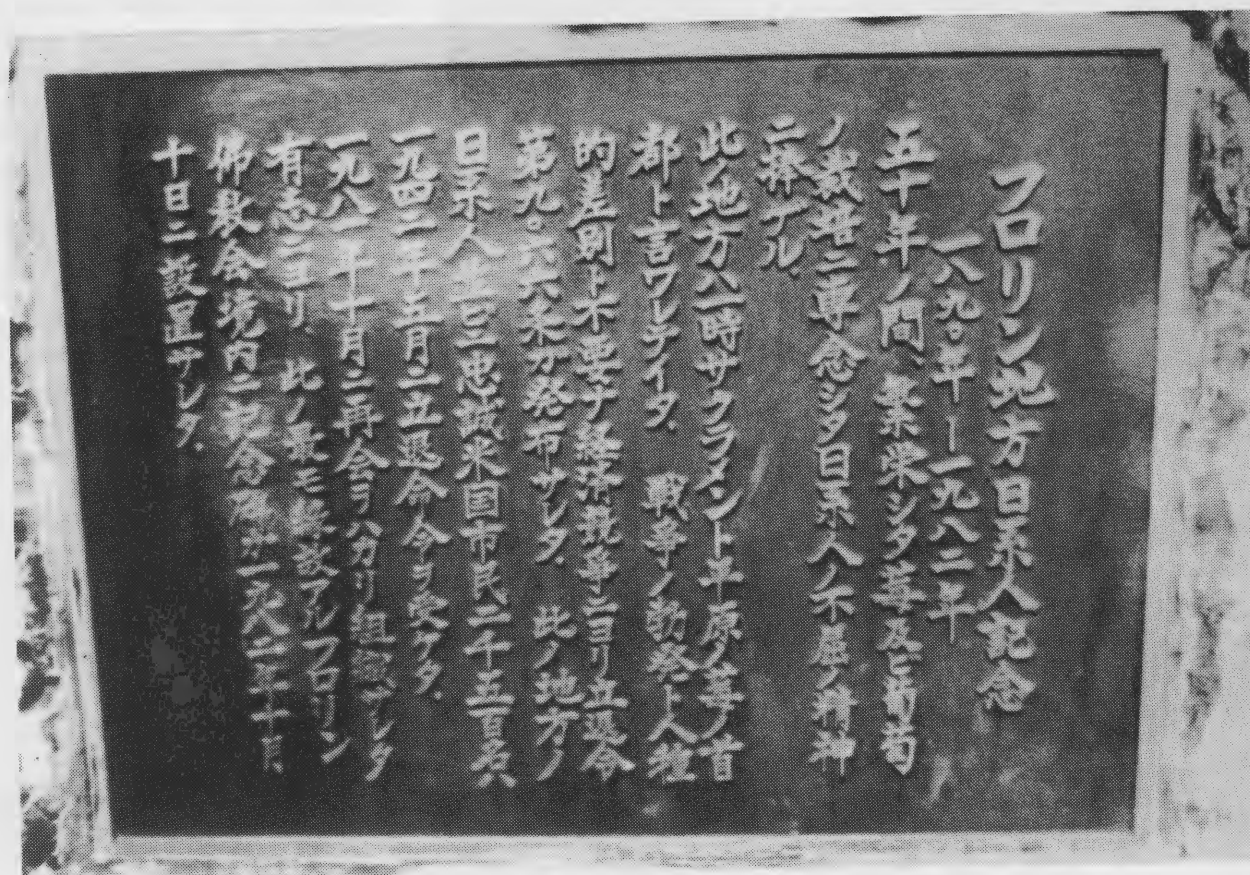 フロリン地方日系人記念
一八九〇年ー一九八二年
五十年ノ間、繁栄シタ苺及ビ葡萄
ノ栽培ニ専念シタ日系人ノ不屈ノ精神
ニ捧ゲル、
此ノ地方ハ一時サクラメント平原ノ苺ノ首
都ト言ワレテイタ、戦争ノ勃発ト人種
的差別ト不要ナ経済競争ニヨリ立退令
第九〇六六条ガ発布サレタ、此ノ地方ノ
日系人並ビニ忠誠米国市民二千五百名ハ
一九四二年五月ニ立退命令ヲ受ケタ、
一九八一年十月ニ再会ヲハカリ組織サレタ
有志ニヨリ、此ノ最モ縁故アルフロリン
佛教会境内ニ記念碑ガ一九八二年十月
十日ニ設置サレタ、